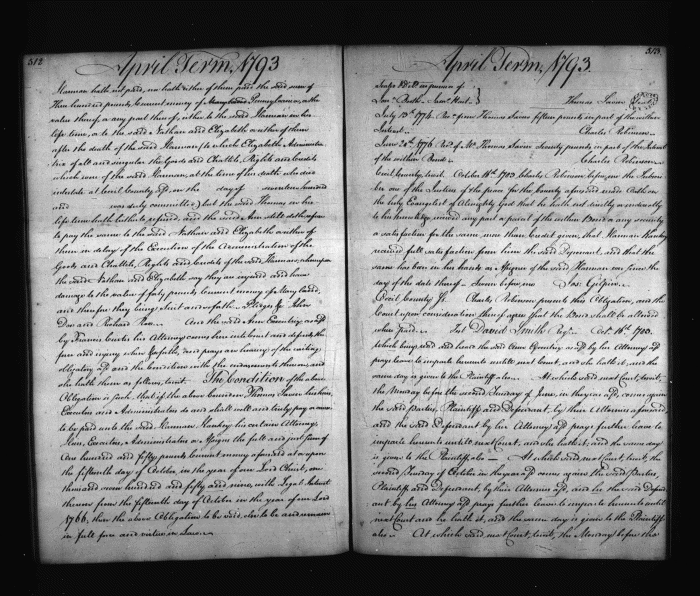 312
April Term, 1793
Harman hath not paid, nor hath either of them paid the said sum of
Three hundred pounds Current money of Pennsylvania, or the
value thereof, or any part thereof, either to the said Harman in his
life time, or to the said Nathan and Elizabeth or either of them
after the death of the said Harman (to which Elizabeth Administra-
tion of all and singular the Goods and Chattels, Rights and Credits
which were of the said Harman, at the time of his death who died
intestate at Cecil County afd, on the day of seventeen hundred
and was duly committed) but the said Thomas in his
life time hath hitherto refused, and the said Ann still doth refuse
to pay the same to the said Nathan and Elizabeth or either of
them in delay of the Execution of the Administration of the
Goods and Chattels, Rights and Credits of the said Harman, whereupon
the said Nathan and Elizabeth say they are injured and have
damage to the value of forty pounds Current money of Maryland,
and therefore they bring suit and so forth. Pledges &c John
Doe and Richard Roe. And the said Ann Executrix, as afd
by Francis her Attorney comes here into Court and defends the
force and injury when &c, and prays a hearing of the writing
obligatory afd and the Condition with the endorsements thereon, and
she hath them as follows, to wit. The Condition of the above
Obligation is such, that if the above bounden Thomas Savin his heirs,
Executors and Administrators do and shall well and truly pay or cause
to be paid unto the said Harman Hankey his certain Attorney,
Heirs, Executors, Administrators or Assigns the full and just sum of
One hundred and fifty pounds Current money aforesaid at or upon
the fifteenth day of October, in the year of our Lord Christ, one
thousand seven hundred and sixty and nine, with Legal Interest
thereon from the fifteenth day of October in the year of our Lord
1766, then the above Obligation to be void, else to be and remain
in full force and virtue in Law.
313
April Term, 1793.
Sealed & Del in presence of
Saml Hart. } Thomas Savin (Seal)
July 13th 1774. Recd from Thomas Savin fifteen pounds in part of the within
Interest. Charles Robinson.
June 20th 1776 Recd of Mr. Thomas Savin Seventy pounds in part of the Interest
of the within Bond. Charles Robinson.
Cecil County, to wit. October 14th 1783. Charles Robinson before me the Subscri-
ber one of the Justices of the peace for the County aforesaid made Oath on
the holy Evangelist of Almighty God that he hath not directly or indirectly
to his knowledge received any part or parcel of the within Bond or any security
or satisfaction for the same, more than Credit given, that Harman Hankey
received full satisfaction from him the said Deponent, and that the
same has been in his hands as Assignee of the said Harman ever since the
day of the date thereof. Sworn before me Jos: Gilpin.
Cecil County Sct. Charles Robinson presents this Obligation, and the
Court upon consideration thereof agree that the Bond shall be allowed
when paid. Test David Smith Regr. Octr. 14th 1783.
Which being read and heard the said Ann Executrix as afd by her Attorney afd
prays leave to imparle hereunto until next Court, and she hath it, and the
same day is given to the Plaintiffs also. At which said next Court, to wit,
the Monday before the second Tuesday of June, in the year afd, comes again
the said Parties, Plaintiffs and Defendant, by their Attornies aforesaid,
and the said Defendant by her Attorney afd prays further leave to
imparle hereunto until next Court, and she hath it; and the same day
is given to the Plaintiffs also. At which said next Court, to wit, the
second Tuesday of October in the year afd comes again the said Parties
Plaintiffs and Defendant, by their Attornies afd, and he the said Defend-
ant by his Attorney afd prays further leave to imparle hereunto until
next Court and he hath it, and the same day is given to the Plaintiffs
also. At which said next Court, to wit, the Monday before the